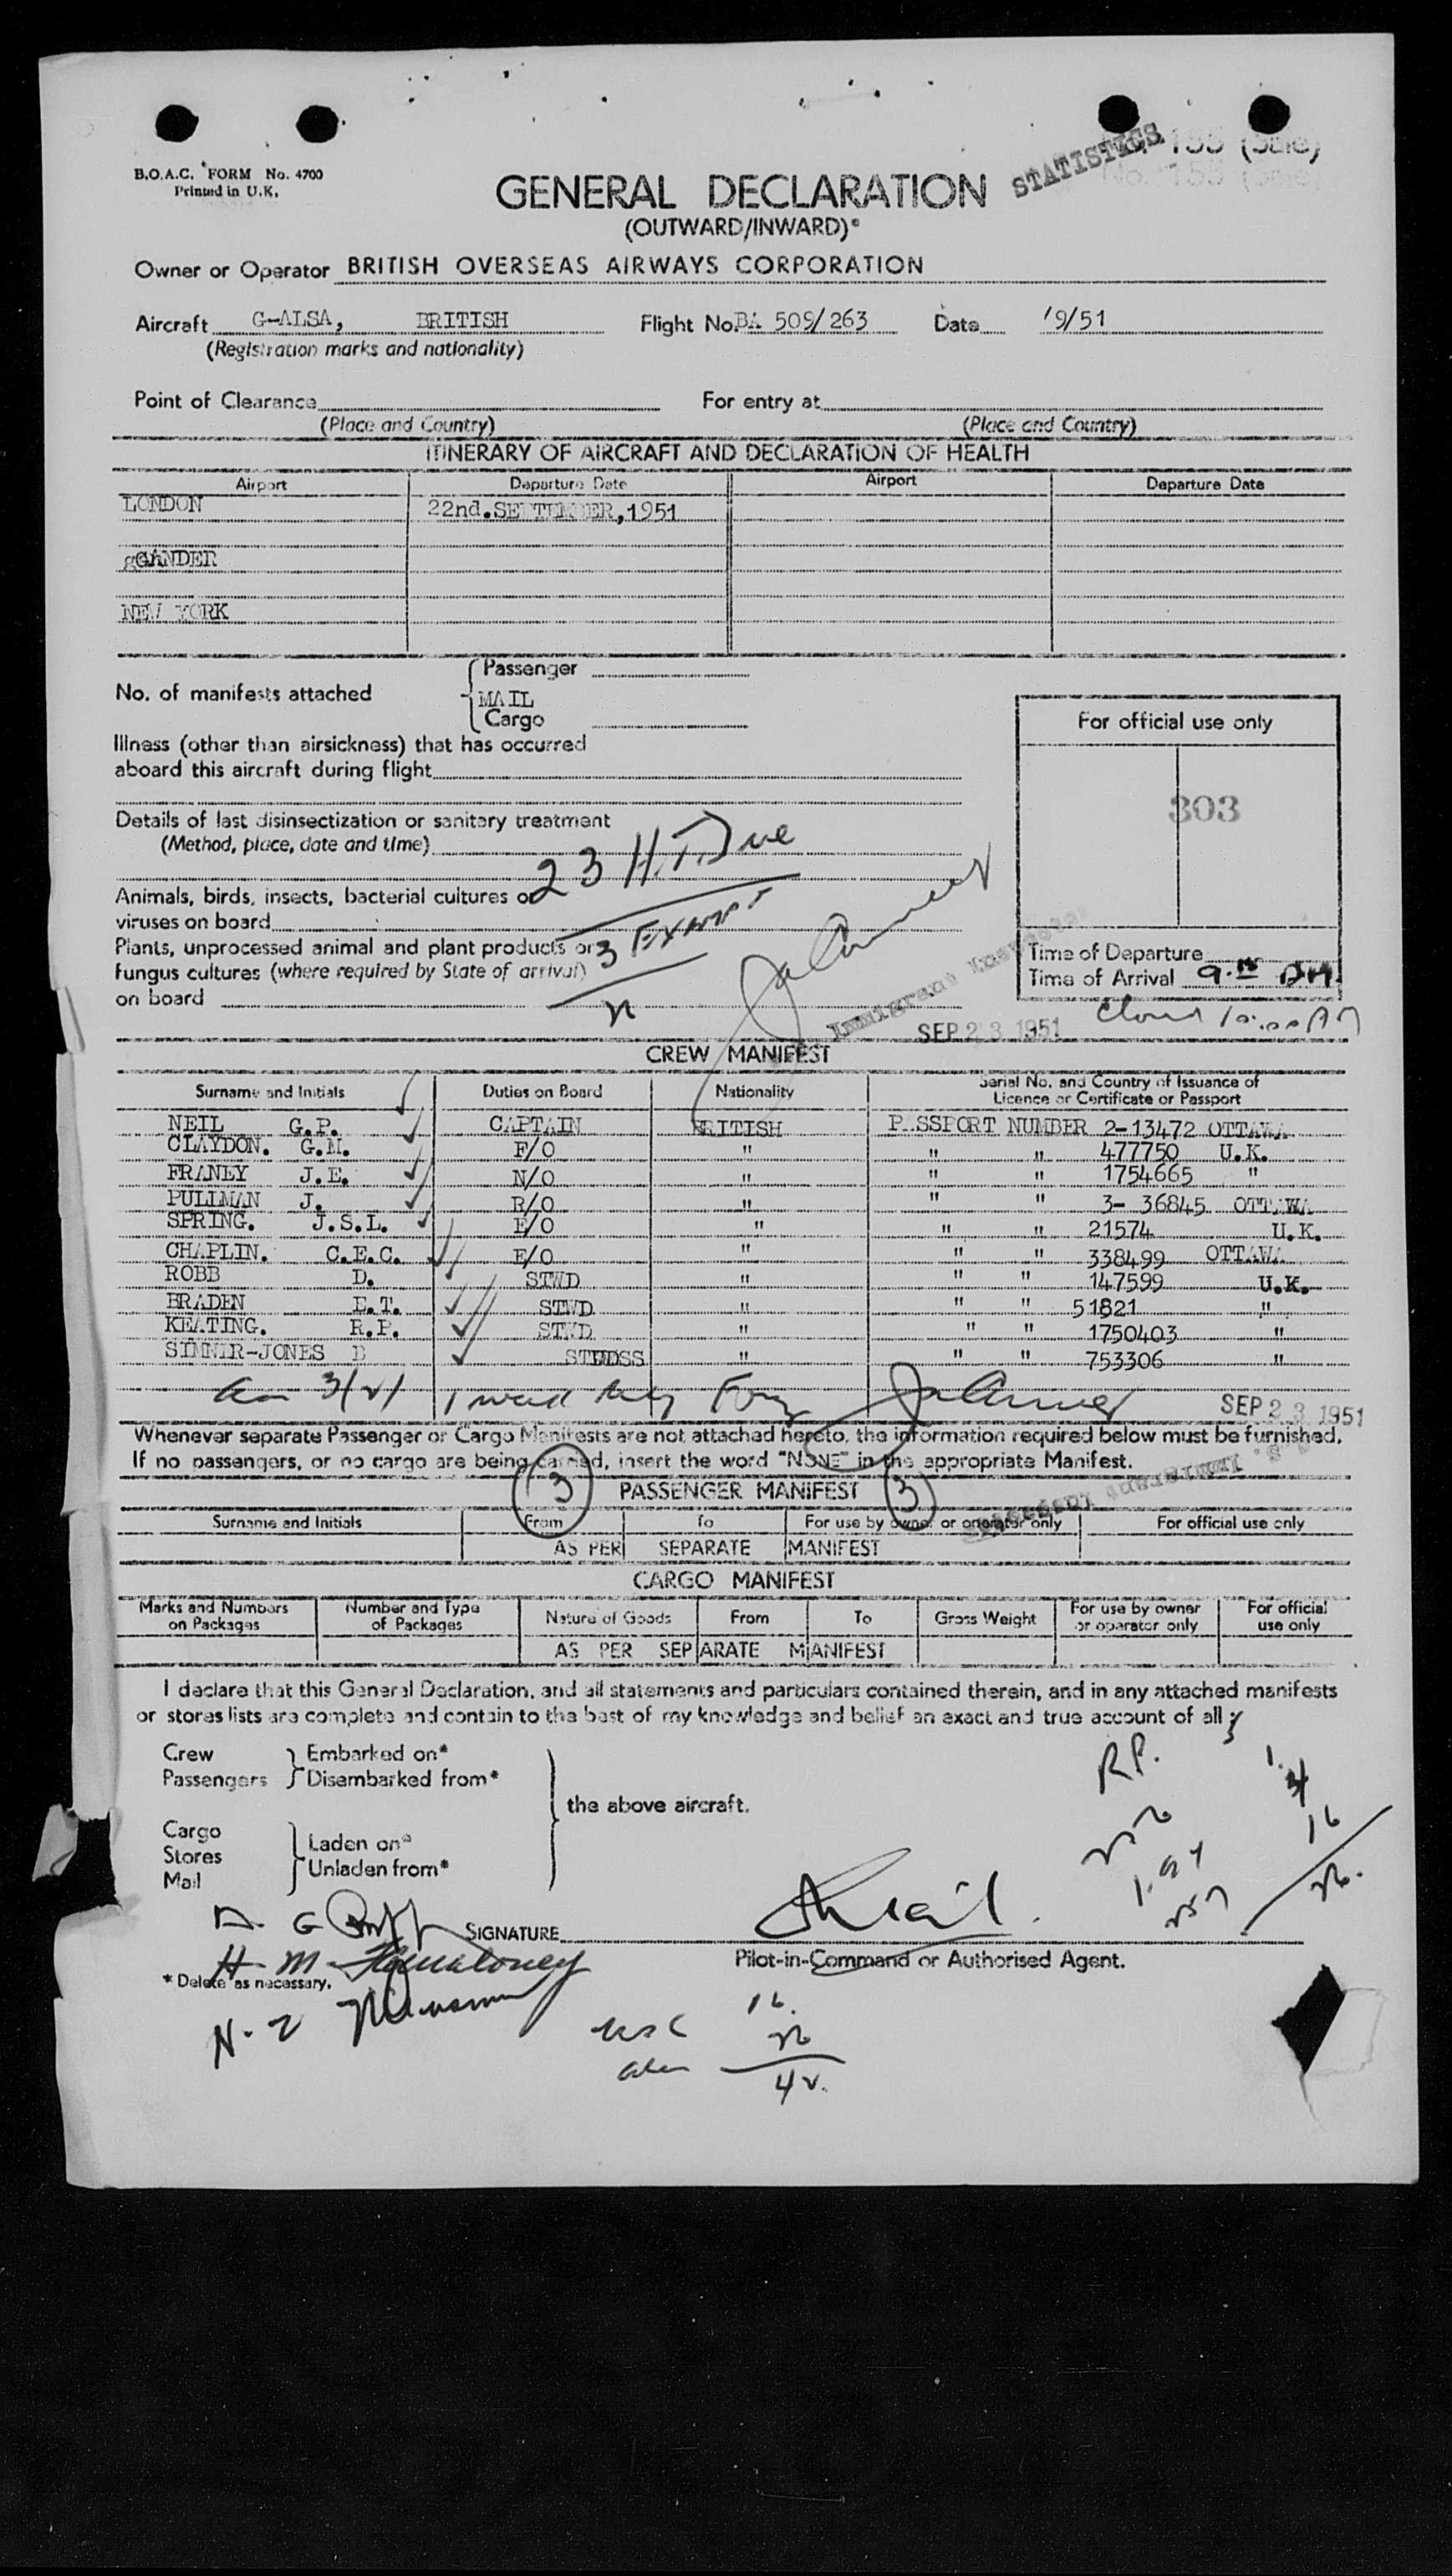 B.O.A.C. FORM No. 4700
Printed in U.K.
STATISTICS
GENERAL DECLARATION
(OUTWARD/INWARD)*
Owner or Operator BRITISH OVERSEAS AIRWAYS CORPORATION
Aircraft G-ALSA, BRITISH Flight No. BA 509/263 Date /9/51
(Registration marks and nationality)
Point of Clearance For entry at
(Place and Country) (Place and Country)
ITINERARY OF AIRCRAFT AND DECLARATION OF HEALTH
Airport Departure Date Airport Departure Date
LONDON 22nd.SEPTEMBER,1951
GANDER
NEW YORK
No. of manifests attached
Passenger
MAIL
Cargo
Illness (other than airsickness) that has occurred
aboard this aircraft during flight
For official use only
303
Details of last disinsectization or sanitary treatment
(Method, place, date and time)
23 H.T. Due
Animals, birds, insects, bacterial cultures or
viruses on board
Plants, unprocessed animal and plant products or
3 Exempt
fungus cultures (where required by State of arrival)
on board
Time of Departure
Time of Arrival
Immigrant Inspector
SEP 23 1951
CREW MANIFEST
Surname and Initials Duties on Board Nationality Serial No. and Country of Issuance of
Licence or Certificate or Passport
NEIL G.P. CAPTAIN BRITISH PASSPORT NUMBER 2-13472 OTTAWA
CLAYDON. G.M. F/O " " " 477750 U.K.
FRANEY J.E. N/O " " " 1754665 "
PULLMAN J. R/O " " " 3- 36845 OTTAWA
SPRING. J.S.L. E/O " " " 21574 U.K.
CHAPLIN. C.E.C. E/O " " " 338499 OTTAWA
ROBB D. STWD " " " 147599 U.K.
BRADEN E.T. STWD " " " 51821 "
KEATING. R.P. STWD " " " 1750403 "
SIMNIR-JONES D STWDSS " " " 753306 "
SEP 23 1951
Whenever separate Passenger or Cargo Manifests are not attached hereto, the information required below must be furnished.
If no passengers, or no cargo are being carried, insert the word "NONE" in the appropriate Manifest.
3 PASSENGER MANIFEST 3
Surname and Initials From To For use by owner or operator only For official use only
AS PER SEPARATE MANIFEST
CARGO MANIFEST
Marks and Numbers on Packages Number and Type of Packages Nature of Goods From To Gross Weight For use by owner or operator only For official use only
AS PER SEPARATE MANIFEST
I declare that this General Declaration, and all statements and particulars contained therein, and in any attached manifests
or stores lists are complete and contain to the best of my knowledge and belief an exact and true account of all
Crew
Passengers
Embarked on*
Disembarked from*
the above aircraft.
Cargo
Stores
Mail
Laden on*
Unladen from*
R.P.
16
SIGNATURE
Pilot-in-Command or Authorised Agent.
* Delete as necessary.